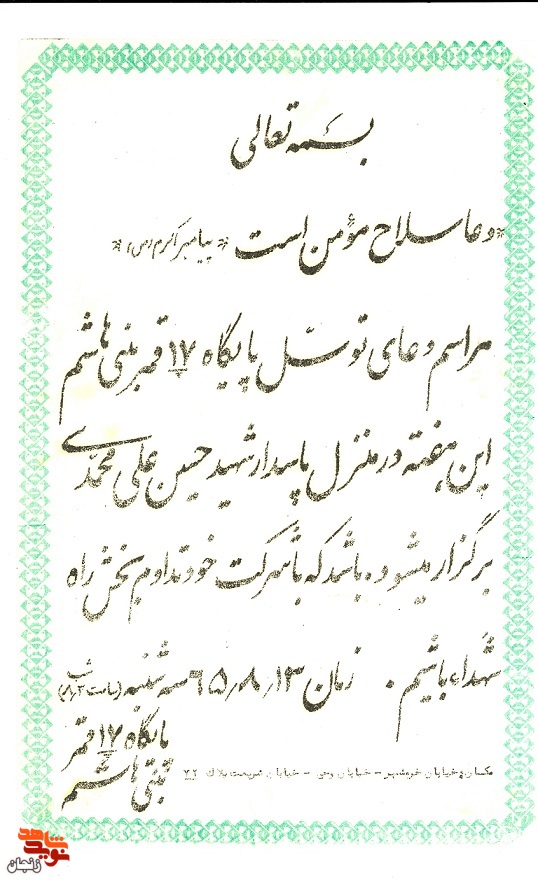 بسمه تعالی
«دعا سلاح مؤمن است» «پیامبر اکرم (ص)»
مراسم دعای توسّل پایگاه ۱۷ قمر بنی هاشم
این هفته در منزل پاسدار شهید حسین علی محمدی
برگزار میشود، باشد که با شرکت خود تداوم بخش راه
شهداء باشیم. زمان ۱۳/۸/۶۵ سه شنبه شب
پایگاه ۱۷ قمر
بنی هاشم
مکان: خیابان خرمشهر - خیابان وحی - خیابان شریعت پلاک ۲۲
نوید شاهد
زنجان